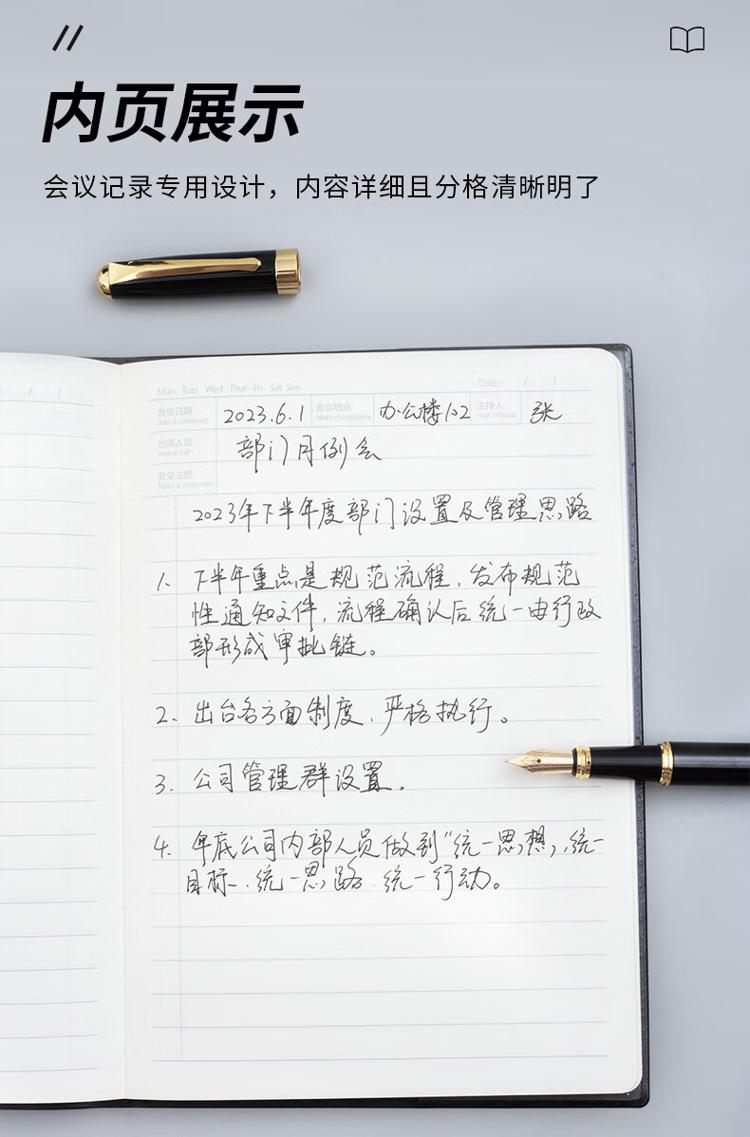 内页展示
会议记录专用设计，内容详细且分格清晰明了
Mon Tues Wed Thur Fri Sat Sun Date: / /
会议日期 2023.6.1 会议地点 办公楼102 主持人 张
出席人员 部门月例会
会议主题
2023年下半年度部门设置及管理思路
1. 下半年重点是规范流程，发布规范
性通知文件，流程确认后统一由行政
部形成审批链。
2. 出台各方面制度，严格执行。
3. 公司管理群设置。
4. 年底公司内部人员做到“统一思想，统一
目标，统一思路，统一行动。